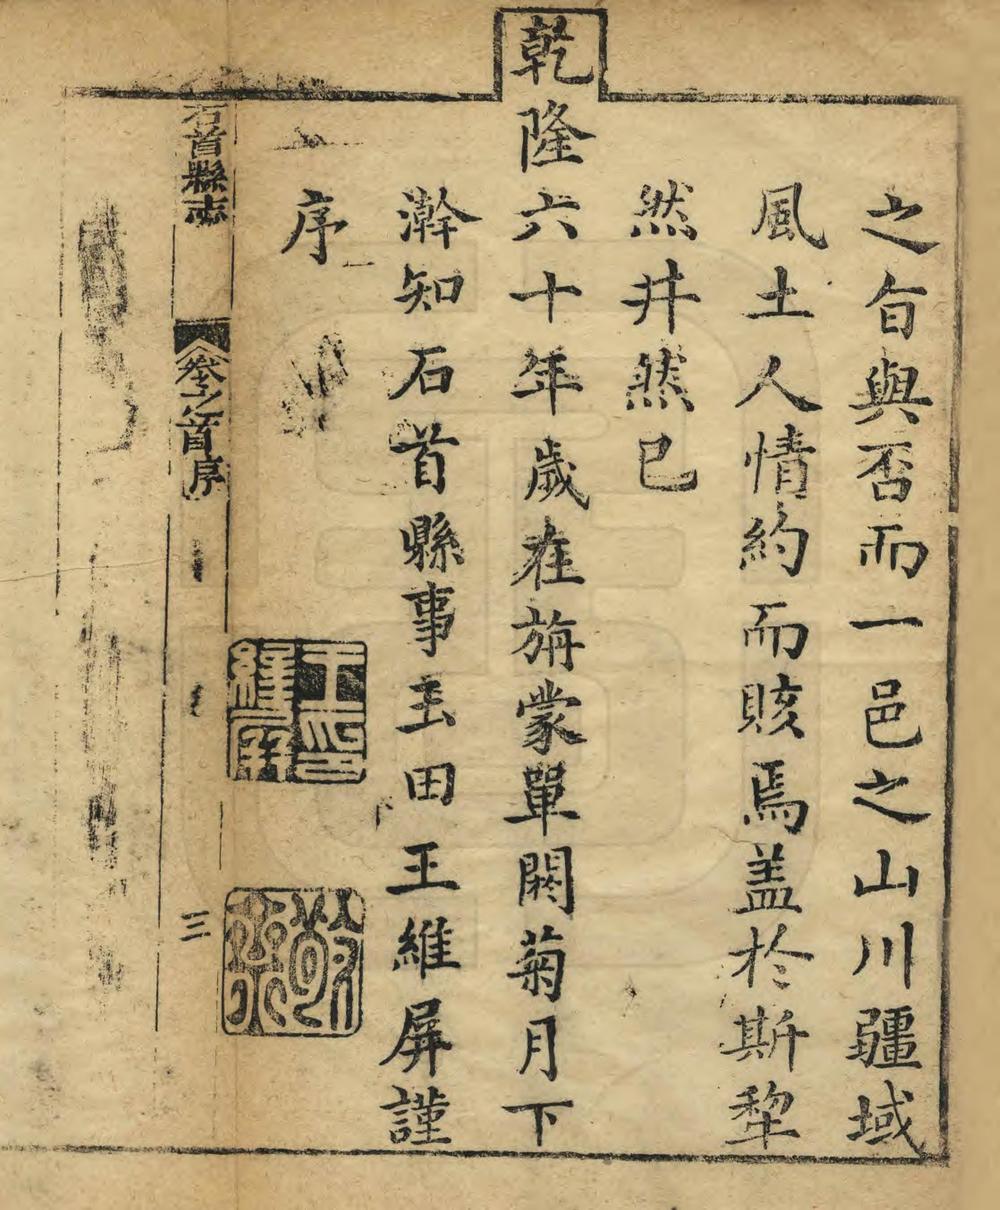 之旨與否而一邑之山川疆域
風土人情約而賅焉盖於斯犂
然井然已
乾隆六十年歲在旃蒙單閼菊月下
澣知石首縣事玉田王維屏謹
序
王維屏印
石首縣志
卷之首序
三